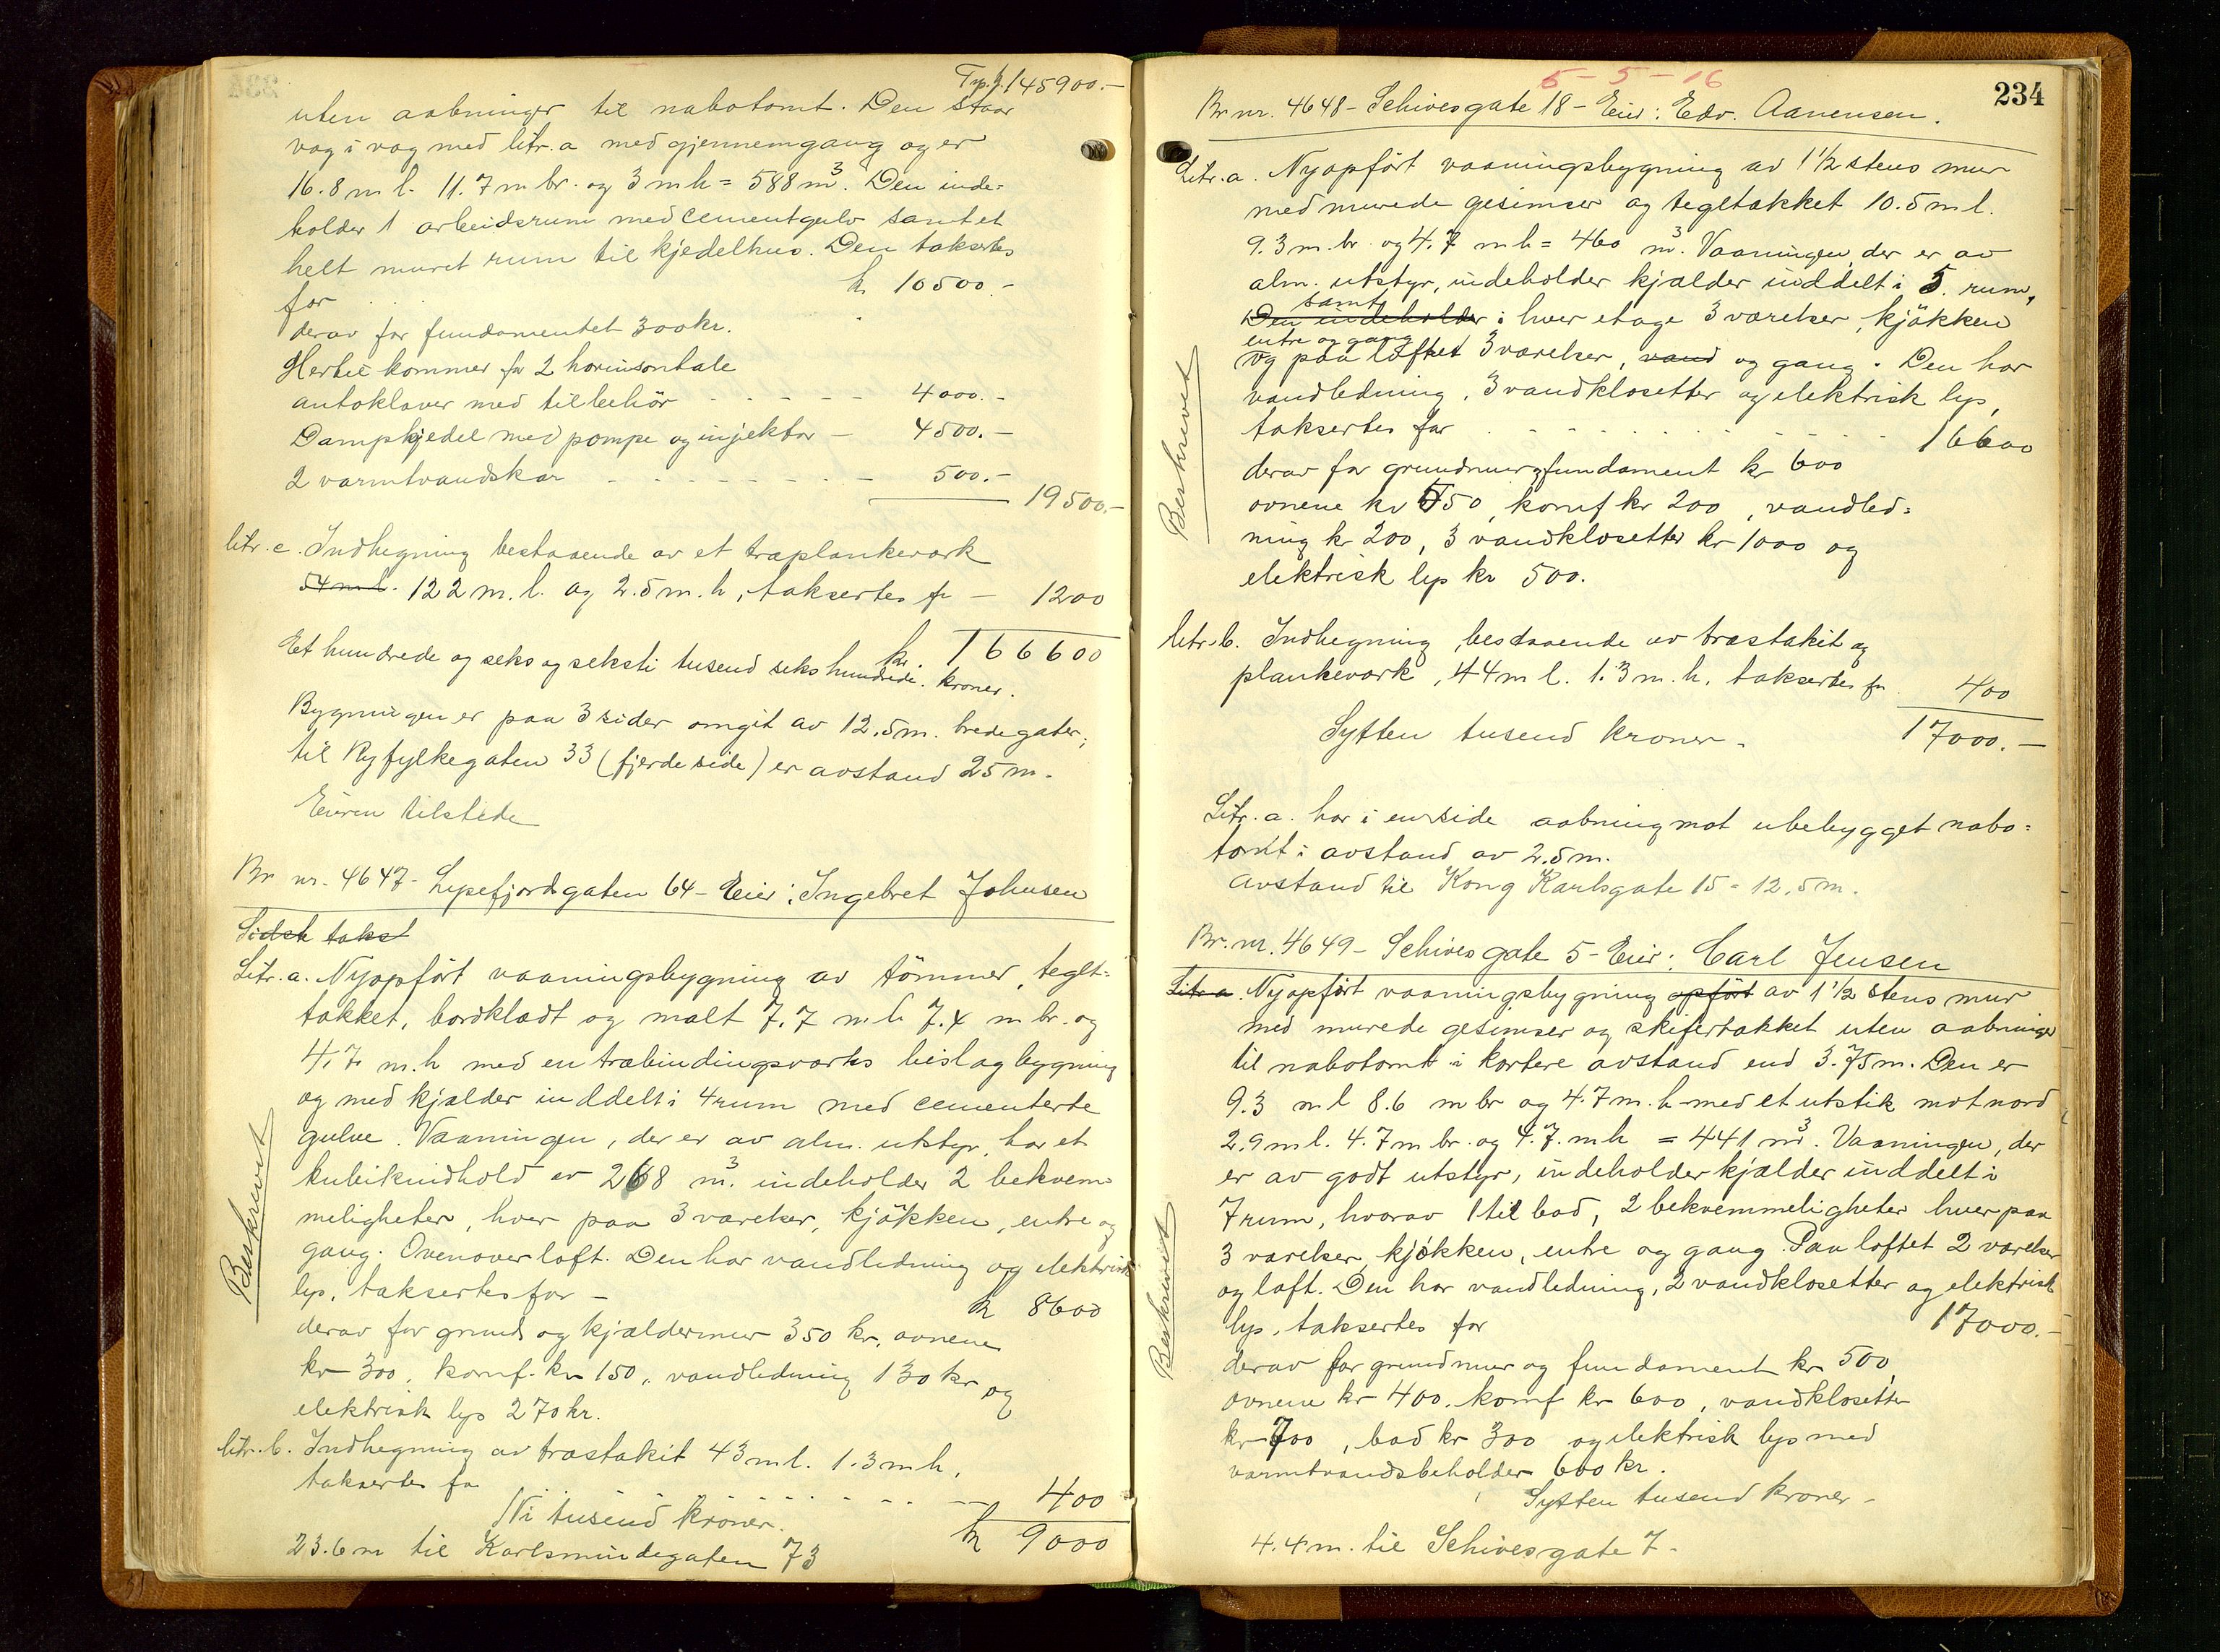 Trp. kr. 145900.-
uten aabninger til nabotomt. Den staar
væg i væg med litr. a med gjennemgang og er
16.8 m l. 11.7 m br. og 3 m h = 588 m³. Den inde=
holder 1 arbeidsrum med cementgulv samt et
helt muret rum til kjedelhus. Den taksertes
for . . . kr 10500.-
derav for fundamentet 300 kr.
Hertil kommer for 2 horinsontale
autoklaver med tilbehör - - - - - 4000.-
Dampkjedel med pompe og injektor - 4500.-
2 varmtvandskar - - - - - - - - 500.-
19500.-
litr. c. Indhegning bestaaende av et træplankeværk
54 m l. 122 m. l. og 2.5 m. h, taksertes fr - 1200
kr. 166600
Et hundrede og seks og seksti tusend seks hundrede kroner.
Bygningen er paa 3 sider omgit av 12.5 m. brede gater;
til Ryfylkegaten 33 (fjerde side) er avstand 25 m.
Eieren tilstede
Br nr. 4647 - Lysefjordsgaten 64 - Eier: Ingebret Johnsen
Sidste takst
Litr. a. Nyopfört vaaningsbygning av tömmer, teglt=
takket, bordklædt og malt 7.7 m l. 7.4 m br. og
4.7 m. h med en træbindingsværks bislagbygning
og med kjælder inddelt i 4 rum med cementerte
gulve. Vaaningen, der er av alm. utstyr, har et
kubikindhold av 268 m³. indeholder 2 bekvem=
meligheter, hver paa 3 værelser, kjökken, entre og
gang. Ovenover loft. Den har vandledning og elektrisk
lys, taksertes for - kr 8600
derav for grund og kjældermur 350 kr, ovnene
kr 300, komf. kr 150, vandledning 130 kr og
elektrisk lys 270 kr.
Beskrevet
litr. b. Indhegning av træstakit 43 m l. 1.3 m h,
taksertes for - - - - - - - 400
Ni tusend kroner. kr 9000
23.6 m til Karlsmindegaten 73
5-5-16
234
Br nr. 4648 - Schivesgate 18 - Eier: Edv. Aanensen.
Litr. a. Nyopfört vaaningsbygning av 1 1/2 stens mur
med murede gesimser og tegltakket 10.5 m l.
9.3 m. br. og 4.7 m h = 460 m³. Vaaningen der er av
alm. utstyr, indeholder kjælder inddelt i 5 rum,
samt
Den indeholder i hver etage 3 værelser, kjökken
entre og gang
og paa loftet 3 værelser, vand og gang. Den har
vandledning, 3 vandklosetter og elektrisk lys,
taksertes for - - - - - - - - 16600
derav for grundmur og fundament kr 600
ovnene kr 550, komf kr 200, vandled=
ning kr 200, 3 vandklosetter kr 1000 og
elektrisk lys kr 500.
Beskrevet
litr. b. Indhegning, bestaaende av træstakit og
plankeværk, 44 m l. 1.3 m. h. taksertes for 400
Sytten tusend kroner - 17000.-
Litr. a. har i en side aabning mot ubebygget nabo=
tomt i avstand av 2.5 m.
Avstand til Kong Karlsgate 15 = 12,5 m.
Br. nr. 4649 - Schivesgate 5 - Eier: Carl Jensen
Litr a. Nyopfört vaaningsbygning opfört av 1 1/2 stens mur
med murede gesimser og skifertakket uten aabninger
til nabotomt i kortere avstand end 3.75 m. Den er
9.3 m l 8.6 m br og 4.7 m. h med et utstik mot nord
2.9 m l. 4.7 m br. og 4.7. m h = 441 m³. Vaaningen, der
er av godt utstyr, indeholder kjælder inddelt i
7 rum, hvorav 1 til bad, 2 bekvemmeligheter hver paa
3 værelser, kjökken, entre og gang. Paa loftet 2 værelser
og loft. Den har vandledning, 2 vandklosetter og elektrisk
lys. taksertes for 17000.-
derav for grundmur og fundament kr 500,
ovnene kr 400. komf kr 600, vandklosetter
kr 700, bad kr 300 og elektrisk lys med
varmtvandsbeholder 600 kr.
Beskrevet
Sytten tusend kroner -
4.4 m. til Schivesgate 7.